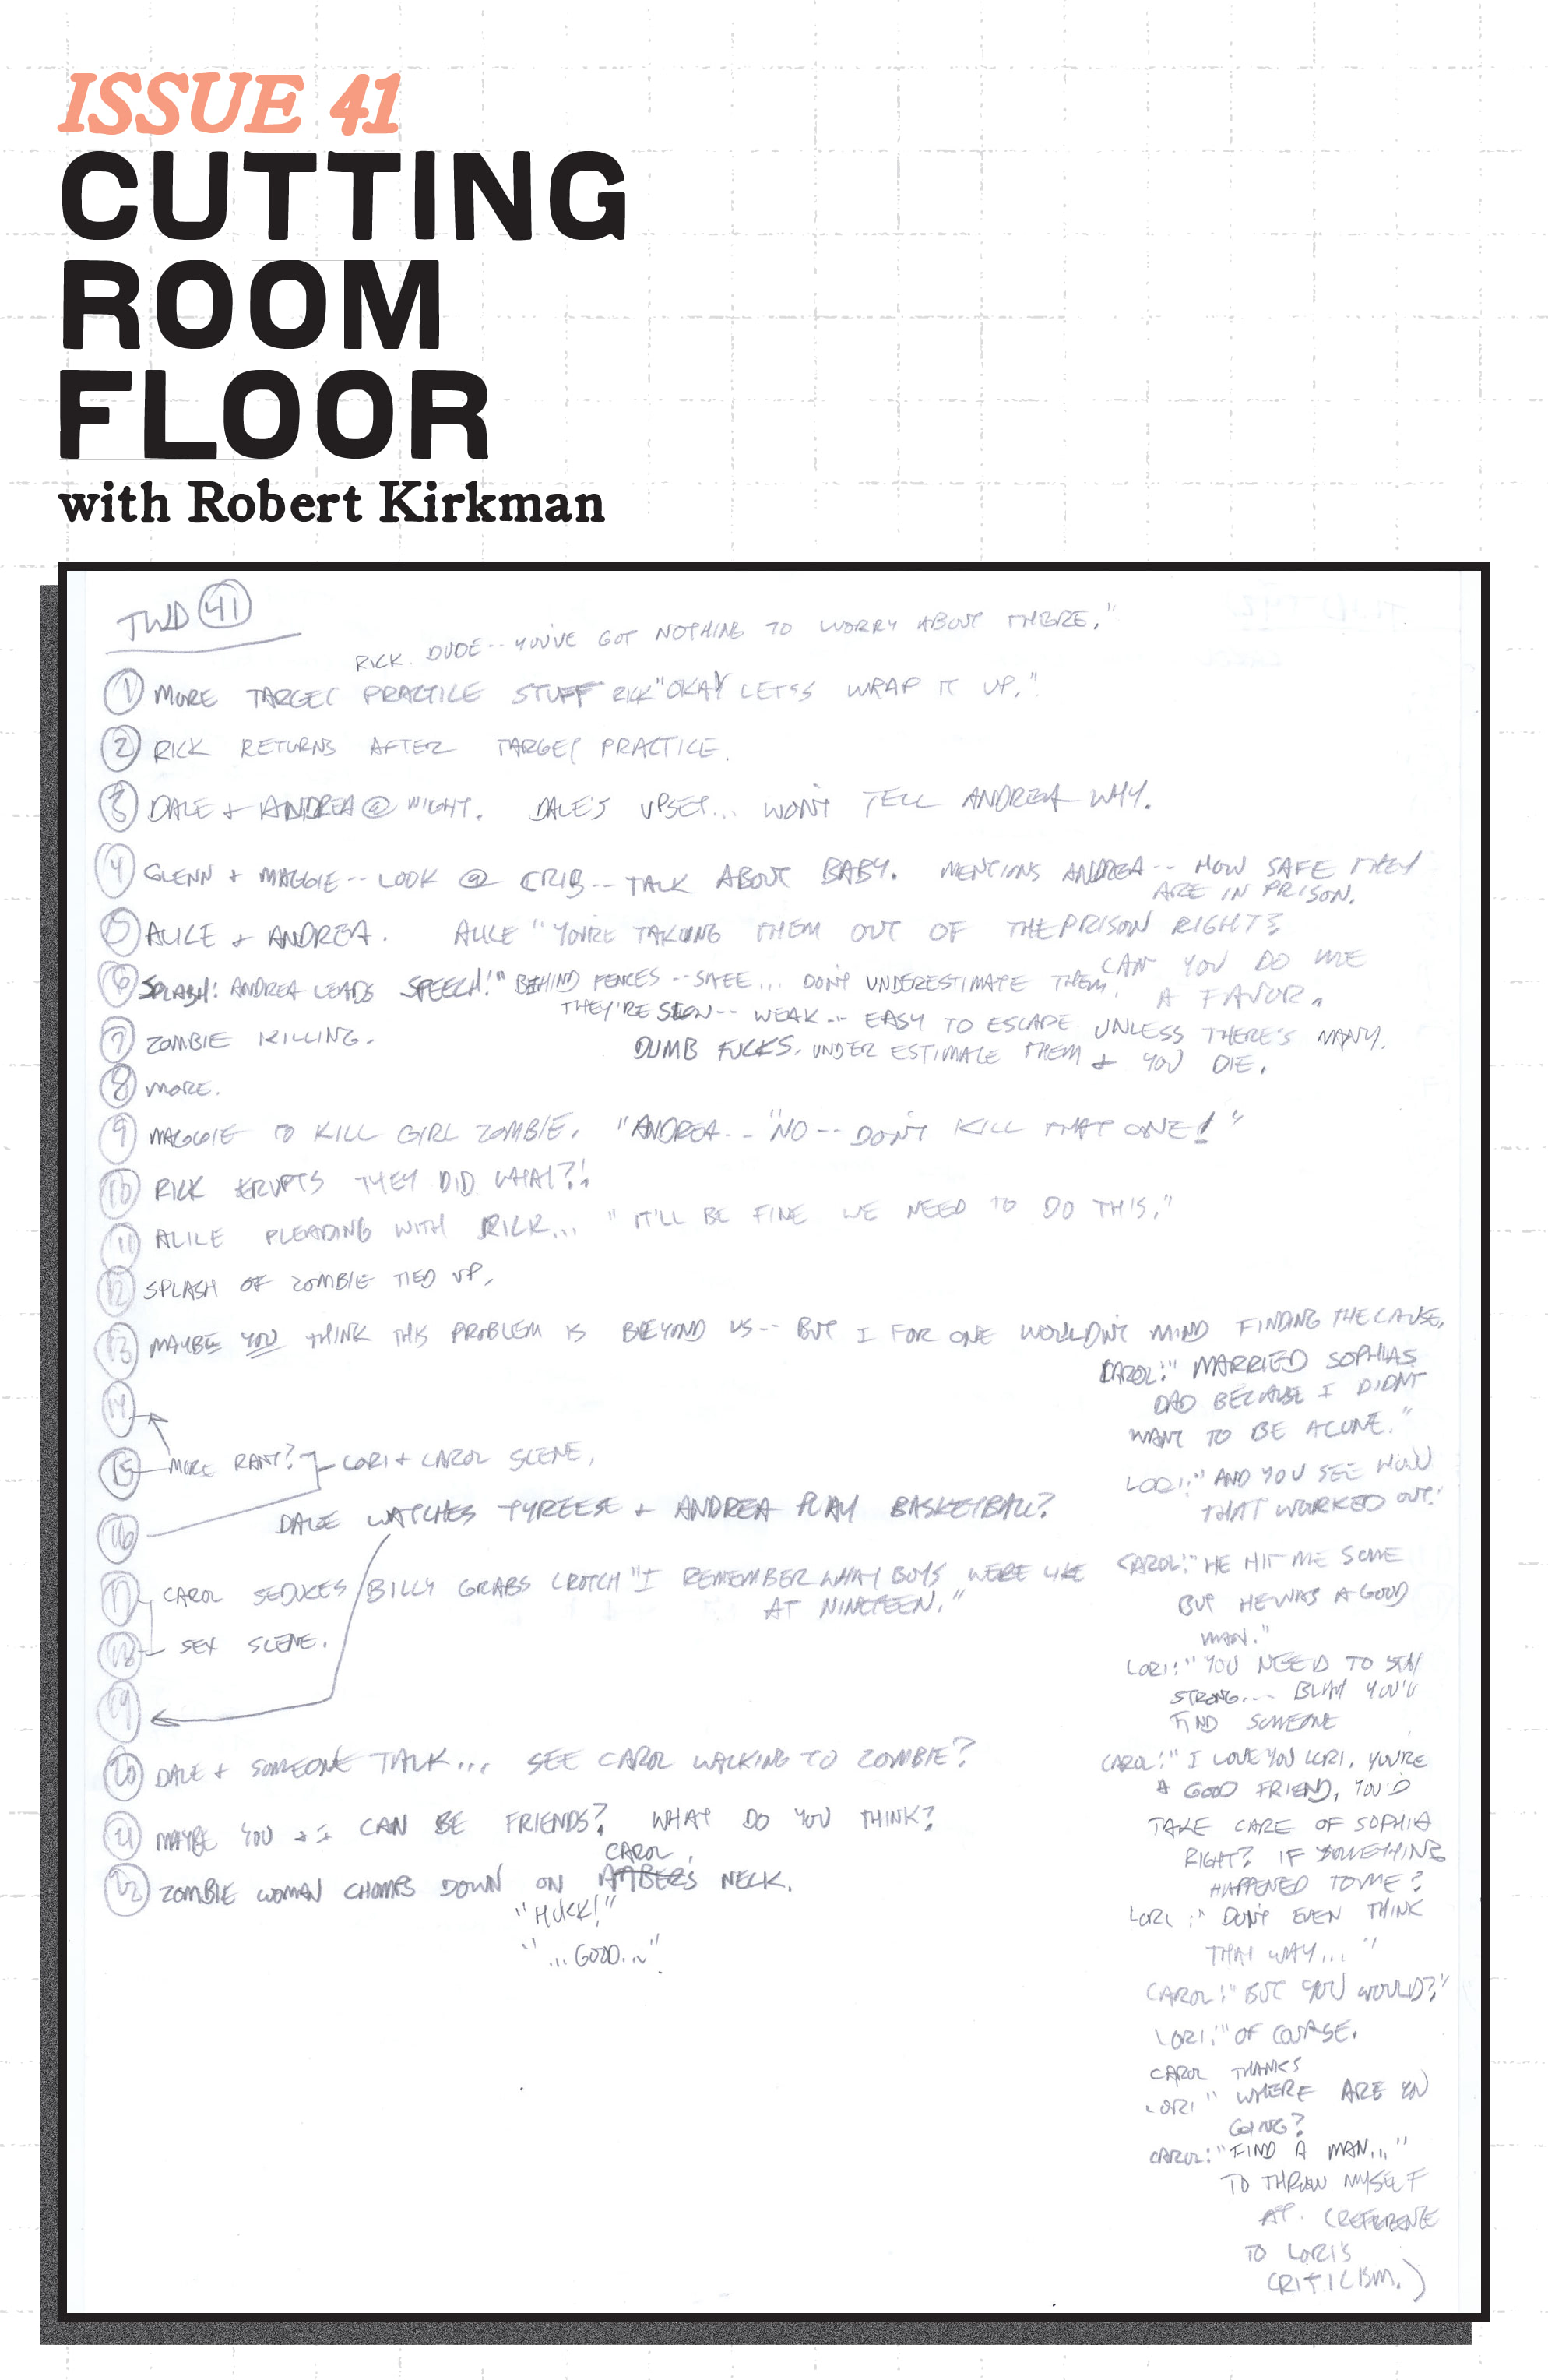 ISSUE 41
CUTTING
ROOM
FLOOR
with Robert Kirkman
TWD 41
RICK DUDE-- YOU'VE GOT NOTHING TO WORRY ABOUT THERE."
1 MORE TARGET PRACTICE STUFF RICK "OKAY LET'S WRAP IT UP."
2 RICK RETURNS AFTER TARGET PRACTICE.
3 DALE + ANDREA @ NIGHT. DALE'S UPSET... WON'T TELL ANDREA WHY.
4 GLENN + MAGGIE -- LOOK @ CRIB -- TALK ABOUT BABY. MENTIONS ANDREA -- HOW SAFE THEY
ARE IN PRISON.
5 ALICE + ANDREA. ALICE "YOU'RE TAKING THEM OUT OF THE PRISON RIGHT?
CAN YOU DO ME
A FAVOR.
6 SPLASH: ANDREA LEADS SPEECH!" BEHIND FENCES -- SAFE... DON'T UNDERESTIMATE THEM.
THEY'RE SLOW -- WEAK -- EASY TO ESCAPE UNLESS THERE'S MANY.
DUMB FUCKS. UNDER ESTIMATE THEM + YOU DIE.
7 ZOMBIE KILLING.
8 MORE.
9 MAGGIE TO KILL GIRL ZOMBIE. "ANDREA -- "NO -- DON'T KILL THAT ONE!"
10 RICK ERUPTS THEY DID WHAT?!
11 ALICE PLEADING WITH RICK... "IT'LL BE FINE WE NEED TO DO THIS."
12 SPLASH OF ZOMBIE TIED UP.
13 MAYBE YOU THINK THIS PROBLEM IS BEYOND US -- BUT I FOR ONE WOULDN'T MIND FINDING THE CAUSE.
14
15 MORE RANT? LORI + CAROL SCENE.
16
DALE WATCHES TYREESE + ANDREA PLAY BASKETBALL?
17 CAROL SEDUCES BILLY GRABS CROTCH "I REMEMBER WHAT BOYS WERE LIKE
AT NINETEEN."
18 SEX SCENE.
19
20 DALE + SOMEONE TALK... SEE CAROL WALKING TO ZOMBIE?
21 MAYBE YOU + I CAN BE FRIENDS? WHAT DO YOU THINK?
CAROL
22 ZOMBIE WOMAN CHOMPS DOWN ON NECK.
"HUCK!"
"...GOOD..."
CAROL: "MARRIED SOPHIAS
DAD BECAUSE I DIDN'T
WANT TO BE ALONE."
LORI: "AND YOU SEE HOW
THAT WORKED OUT."
CAROL: "HE HIT ME SOME
BUT HE WAS A GOOD
MAN."
LORI: "YOU NEED TO STAY
STRONG... BLAH YOU'LL
FIND SOMEONE
CAROL: "I LOVE YOU LORI, YOU'RE
A GOOD FRIEND, YOU'D
TAKE CARE OF SOPHIA
RIGHT? IF SOMETHING
HAPPENED TO ME?
LORI: "DON'T EVEN THINK
THAT WAY..."
CAROL: "BUT YOU WOULD?"
LORI: "OF COURSE.
CAROL THANKS
LORI "WHERE ARE YOU
GOING?
CAROL: "FIND A MAN..."
TO THROW MYSELF
AT. (REFERENCE
TO LORI'S
CRITICISM.)